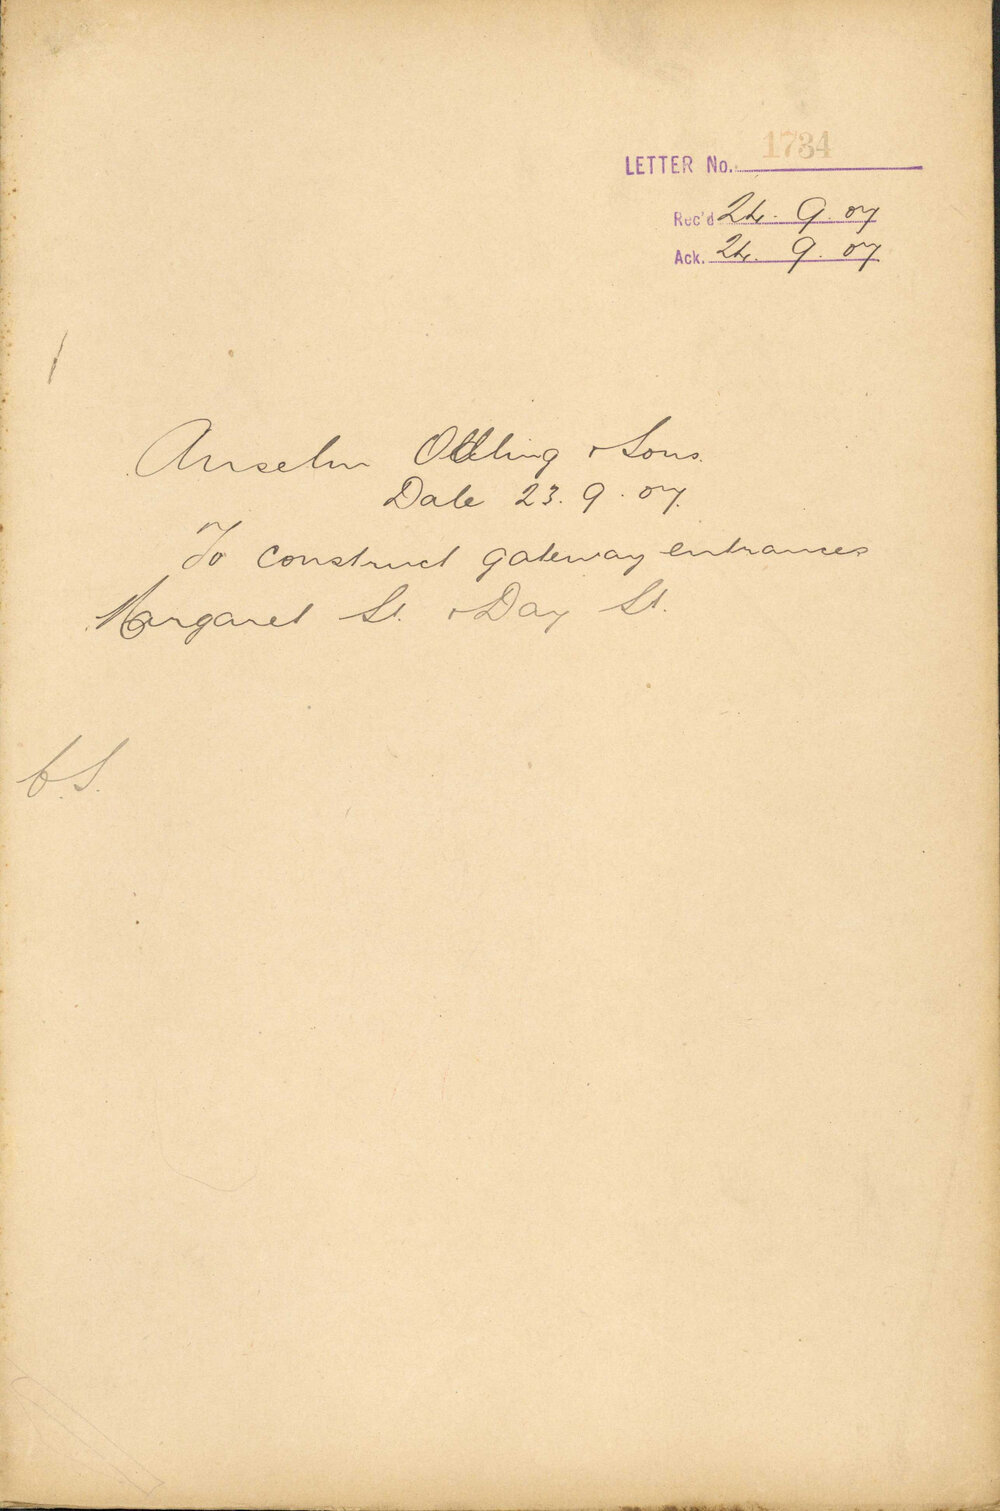 LETTER No. 1734
Rec'd 24. 9. 07
Ack. 24. 9. 07
Anselm Odling & Sons.
Date 23. 9. 07.
To construct gateway entrances
Margaret St. & Day St.
C.S.